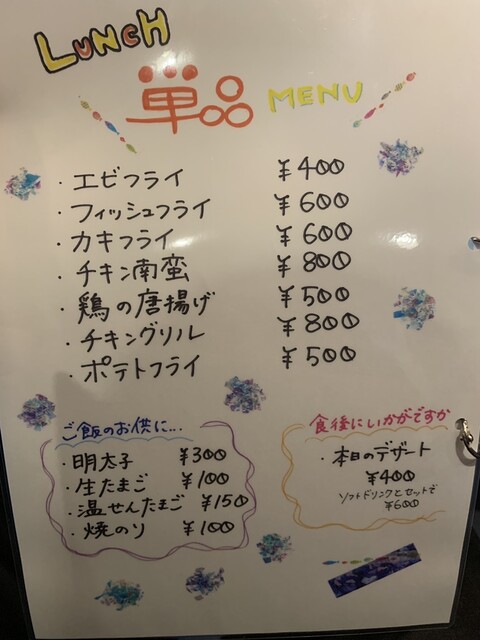 LUNCH
単品 MENU
・エビフライ ¥400
・フィッシュフライ ¥600
・カキフライ ¥600
・チキン南蛮 ¥800
・鶏の唐揚げ ¥500
・チキングリル ¥800
・ポテトフライ ¥500
ご飯のお供に...
・明太子 ¥300
・生たまご ¥100
・温せんたまご ¥150
・焼のり ¥100
食後にいかがですか
・本日のデザート
¥400
ソフトドリンクとセットで
¥600